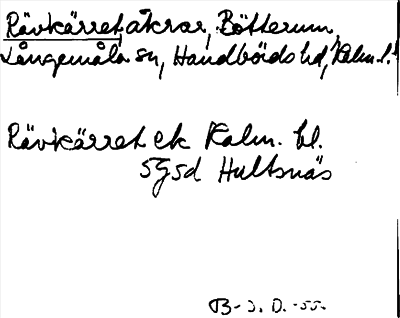 Rävkärret, åkrar, Bötterum,
Långemåla sn, Handbörds hd, Kalm. l.
Rävkärret ek Kalm. bl.
5G5d Hultsnäs
B-J. O. -55-